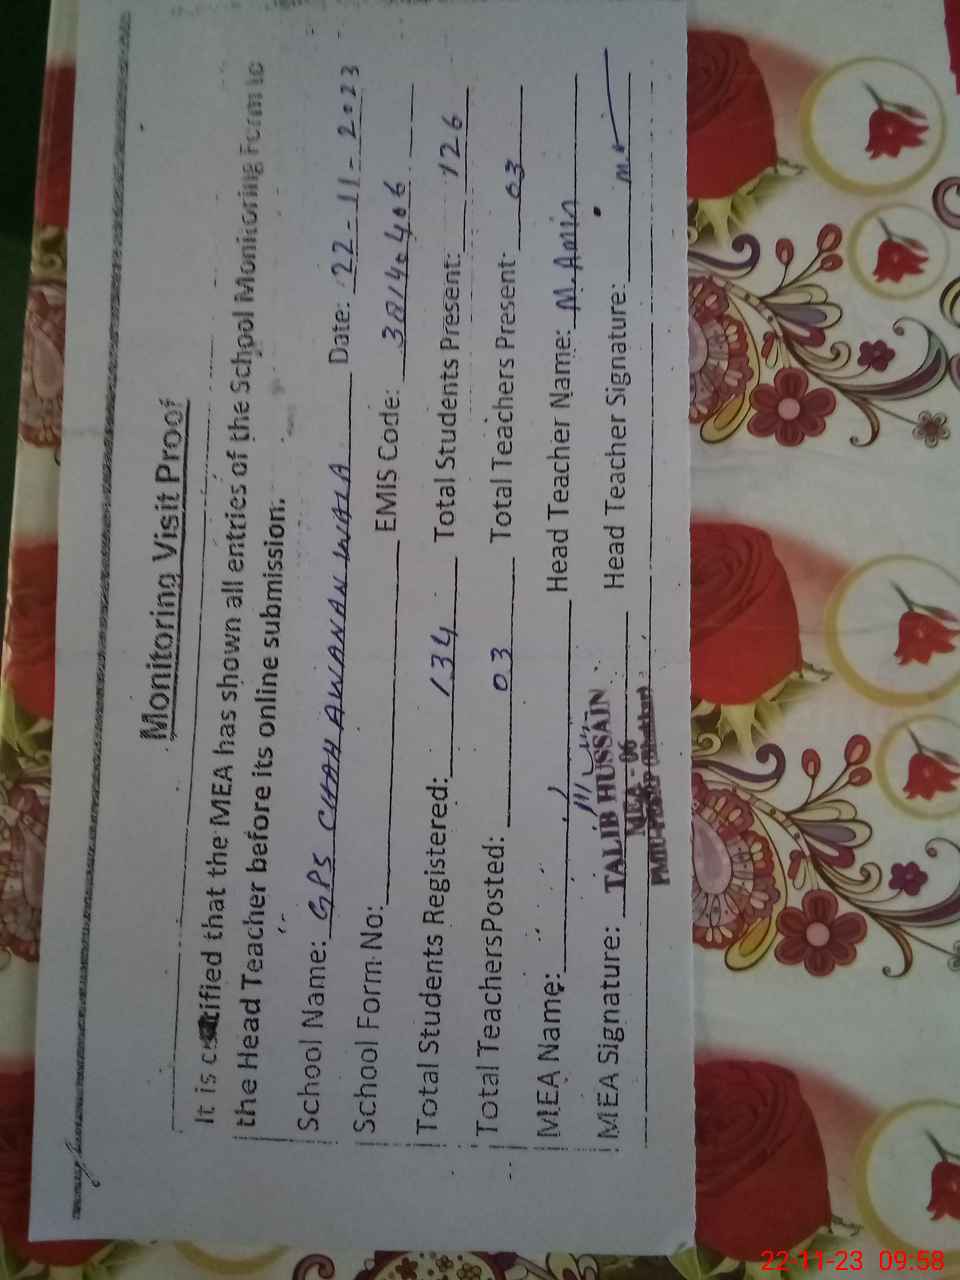 Monitoring Visit Proof
It is certified that the MEA has shown all entries of the School Monitoring Form to
the Head Teacher before its online submission.
School Name: GPS CHAH AWANAN WALA Date: 22-11-2023
School Form No: EMIS Code:
Total Students Registered: 134 Total Students Present: 126
Total TeachersPosted: 03 Total Teachers Present: 03
MEA Name: Head Teacher Name: M. Amin
MEA Signature: Head Teacher Signature:
TALIB HUSSAIN
MEA - 06
22-11-23 09:58